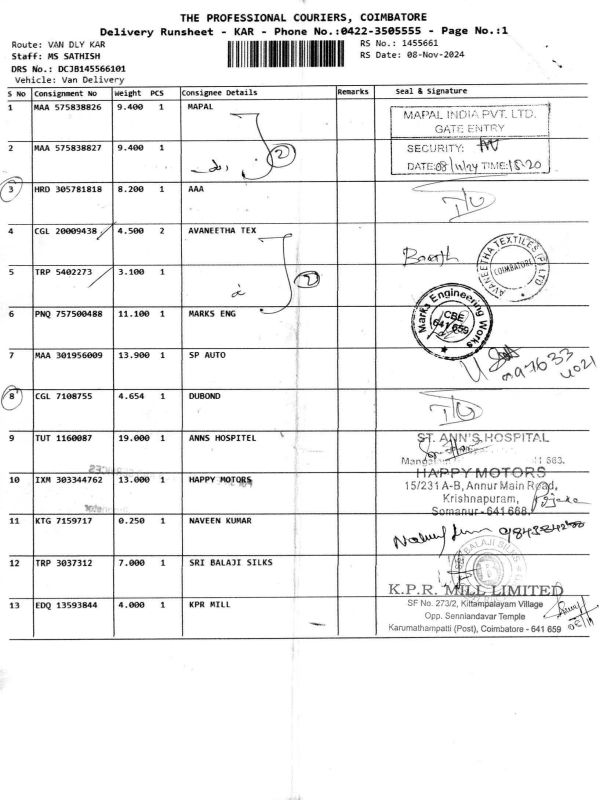 THE PROFESSIONAL COURIERS, COIMBATORE
Delivery Runsheet - KAR - Phone No.:0422-3505555 - Page No.:1
Route: VAN DLY KAR
RS No.: 1455661
Staff: MS SATHISH
RS Date: 08-Nov-2024
DRS No.: DCJB145566101
Vehicle: Van Delivery
S No Consignment No Weight PCS Consignee Details Remarks Seal & Signature
1 MAA 575838826 9.400 1 MAPAL
MAPAL INDIA PVT. LTD.
GATE ENTRY
2 MAA 575838827 9.400 1
2
SECURITY:
DATE: 08/11/24 TIME: 15.20
3 HRD 305781818 8.200 1 AAA
4 CGL 20009438 4.500 2 AVANEETHA TEX
AVANEETHA TEXTILES (P) LTD
COIMBATORE
5 TRP 5402273 3.100 1
2
6 PNQ 757500488 11.100 1 MARKS ENG
Marks Engineering Works
CBE
641 659
7 MAA 301956009 13.900 1 SP AUTO
8 CGL 7108755 4.654 1 DUBOND
9 TUT 1160087 19.000 1 ANNS HOSPITEL
ST. ANN'S HOSPITAL
10 IXM 303344762 13.000 1 HAPPY MOTORS
HAPPY MOTORS
15/231 A-B, Annur Main Road,
Krishnapuram,
Somanur - 641668.
11 KTG 7159717 0.250 1 NAVEEN KUMAR
12 TRP 3037312 7.000 1 SRI BALAJI SILKS
BALAJI SILKS
13 EDQ 13593844 4.000 1 KPR MILL
K.P.R. MILL LIMITED
SF No. 273/2, Kittampalayam Village
Opp. Senniandavar Temple
Karumathampatti (Post), Coimbatore - 641 659